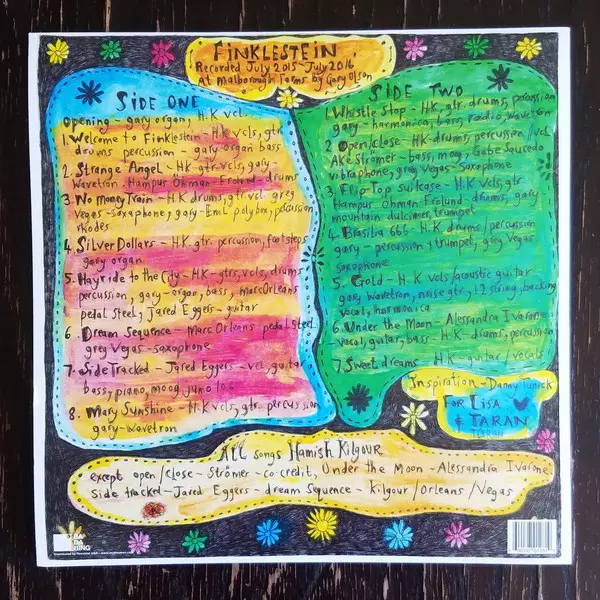 FINKLESTEIN
Recorded July 2015 - July 2016
At Malborough Farms by Gary Olson
SIDE ONE
Opening - gary organ, H.K vcl.
1. Welcome to Finklestein - H.K vcls, gtr
drums percussion - gary organ bass
2. Strange Angel - HK - gtr-vcls, gary-
Wavetron. Hampus Öhman-Frolund - drums
3. No Money Train - HK drums, gtr vcl greg
Vegas - saxophone, gary - Eml polybox, percussion
rhodes
4. Silver Dollars - H.K gtr. percussion, footsteps
gary organ
5. Hayride to the City - H.K - gtrs, vcls, drums
percussion, gary - organ, bass, Marc Orleans
pedal steel, Jared Eggers - guitar
6. Dream Sequence - Marc Orleans pedal steel
greg Vegas - saxophone
7. Side Tracked - Jared Eggers - vcl, guitar
bass, piano, moog, juno 106
8. Mary Sunshine - H.K vcls, gtr percussion
gary - wavetron
SIDE TWO
1. Whistle Stop - H.K, gtr. drums, percussion
gary - harmonica, bass, radio, Wavetron
2. Open/close - HK - drums, percussion / vcl
Ake Strömer - bass, moog, Gabe Saucedo
vibraphone, greg Vegas - Saxophone
3. Flip Top suitcase - H.K vcls, gtr
Hampus Öhman Frolund - drums, gary
mountain dulcimer, trumpet
4. Brasilia 666 - H.K drums / percussion
gary - percussion & trumpet, greg Vegas
saxophone
5. Gold - H.K vcls / acoustic guitar
gary Wavetron, noise gtr, 12 string, backing
vocal, harmonica
6. Under the Moon - Alessandra Ivarone
vocal, guitar, bass - H.K - drums, percussion
7. Sweet dreams - H.K - guitar / vocals
Inspiration - Danny Tunick
FOR LISA
& TARAN
ALL songs Hamish Kilgour
except open/close - Strömer - co-credit, Under the Moon - Alessandra Ivarone
side tracked - Jared Eggers - dream Sequence - Kilgour / Orleans / Negas
BA
DA
BING